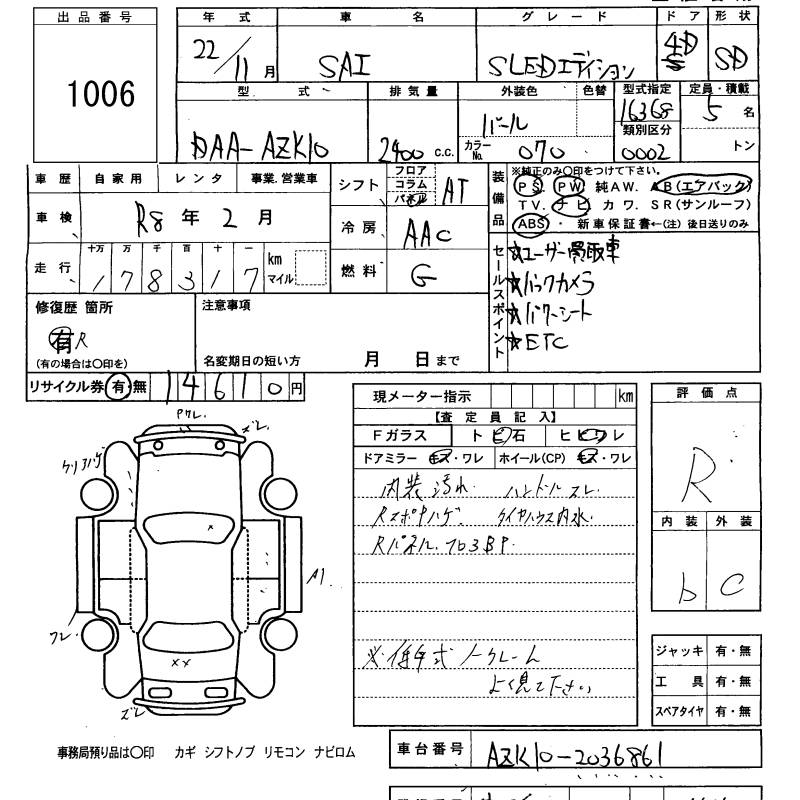 出品番号
1006
年 式 車 名 グレード ドア 形状
22/11月 SAI SLEDエディション 4D SD
型 式 排気量 外装色 色替 型式指定 定員・積載
DAA-AZK10 2400 c.c. パール 16368 5 名
カラーNo. 070 類別区分 0002 トン
車歴 自家用 レンタ 事業.営業車
シフト フロア コラム パネル AT
装備品 ※純正のみ○印をつけて下さい。
PS PW 純AW. AB(エアバック)
TV. ナビ カワ. SR(サンルーフ)
ABS・ 新車保証書←(注) 後日送りのみ
車検 R8 年 2 月
冷房 AAC
走行 十万 万 千 百 十 一
178317 km マイル
燃料 G
セールスポイント
☆ユーザー買取車
☆バックカメラ
☆パワーシート
☆ETC
修復歴 箇所
有 R
(有の場合は○印を)
注意事項
名変期日の短い方 月 日まで
リサイクル券 有・無 14610円
現メーター指示 km
【査定員記入】
Fガラス トビ石 ヒビワレ
ドアミラー キズ・ワレ ホイール(CP) キズ・ワレ
内装汚れ ハンドルスレ
タイヤハウス内水
※低年式ノークレーム
よく見て下さい
評価点
R
内装 外装
b C
ジャッキ 有・無
工 具 有・無
スペアタイヤ 有・無
Pワレ.
ズレ.
クリアハゲ
A1
ワレ.
××
ズレ
事務局預り品は○印 カギ シフトノブ リモコン ナビロム
車台番号 AZK10-2036861